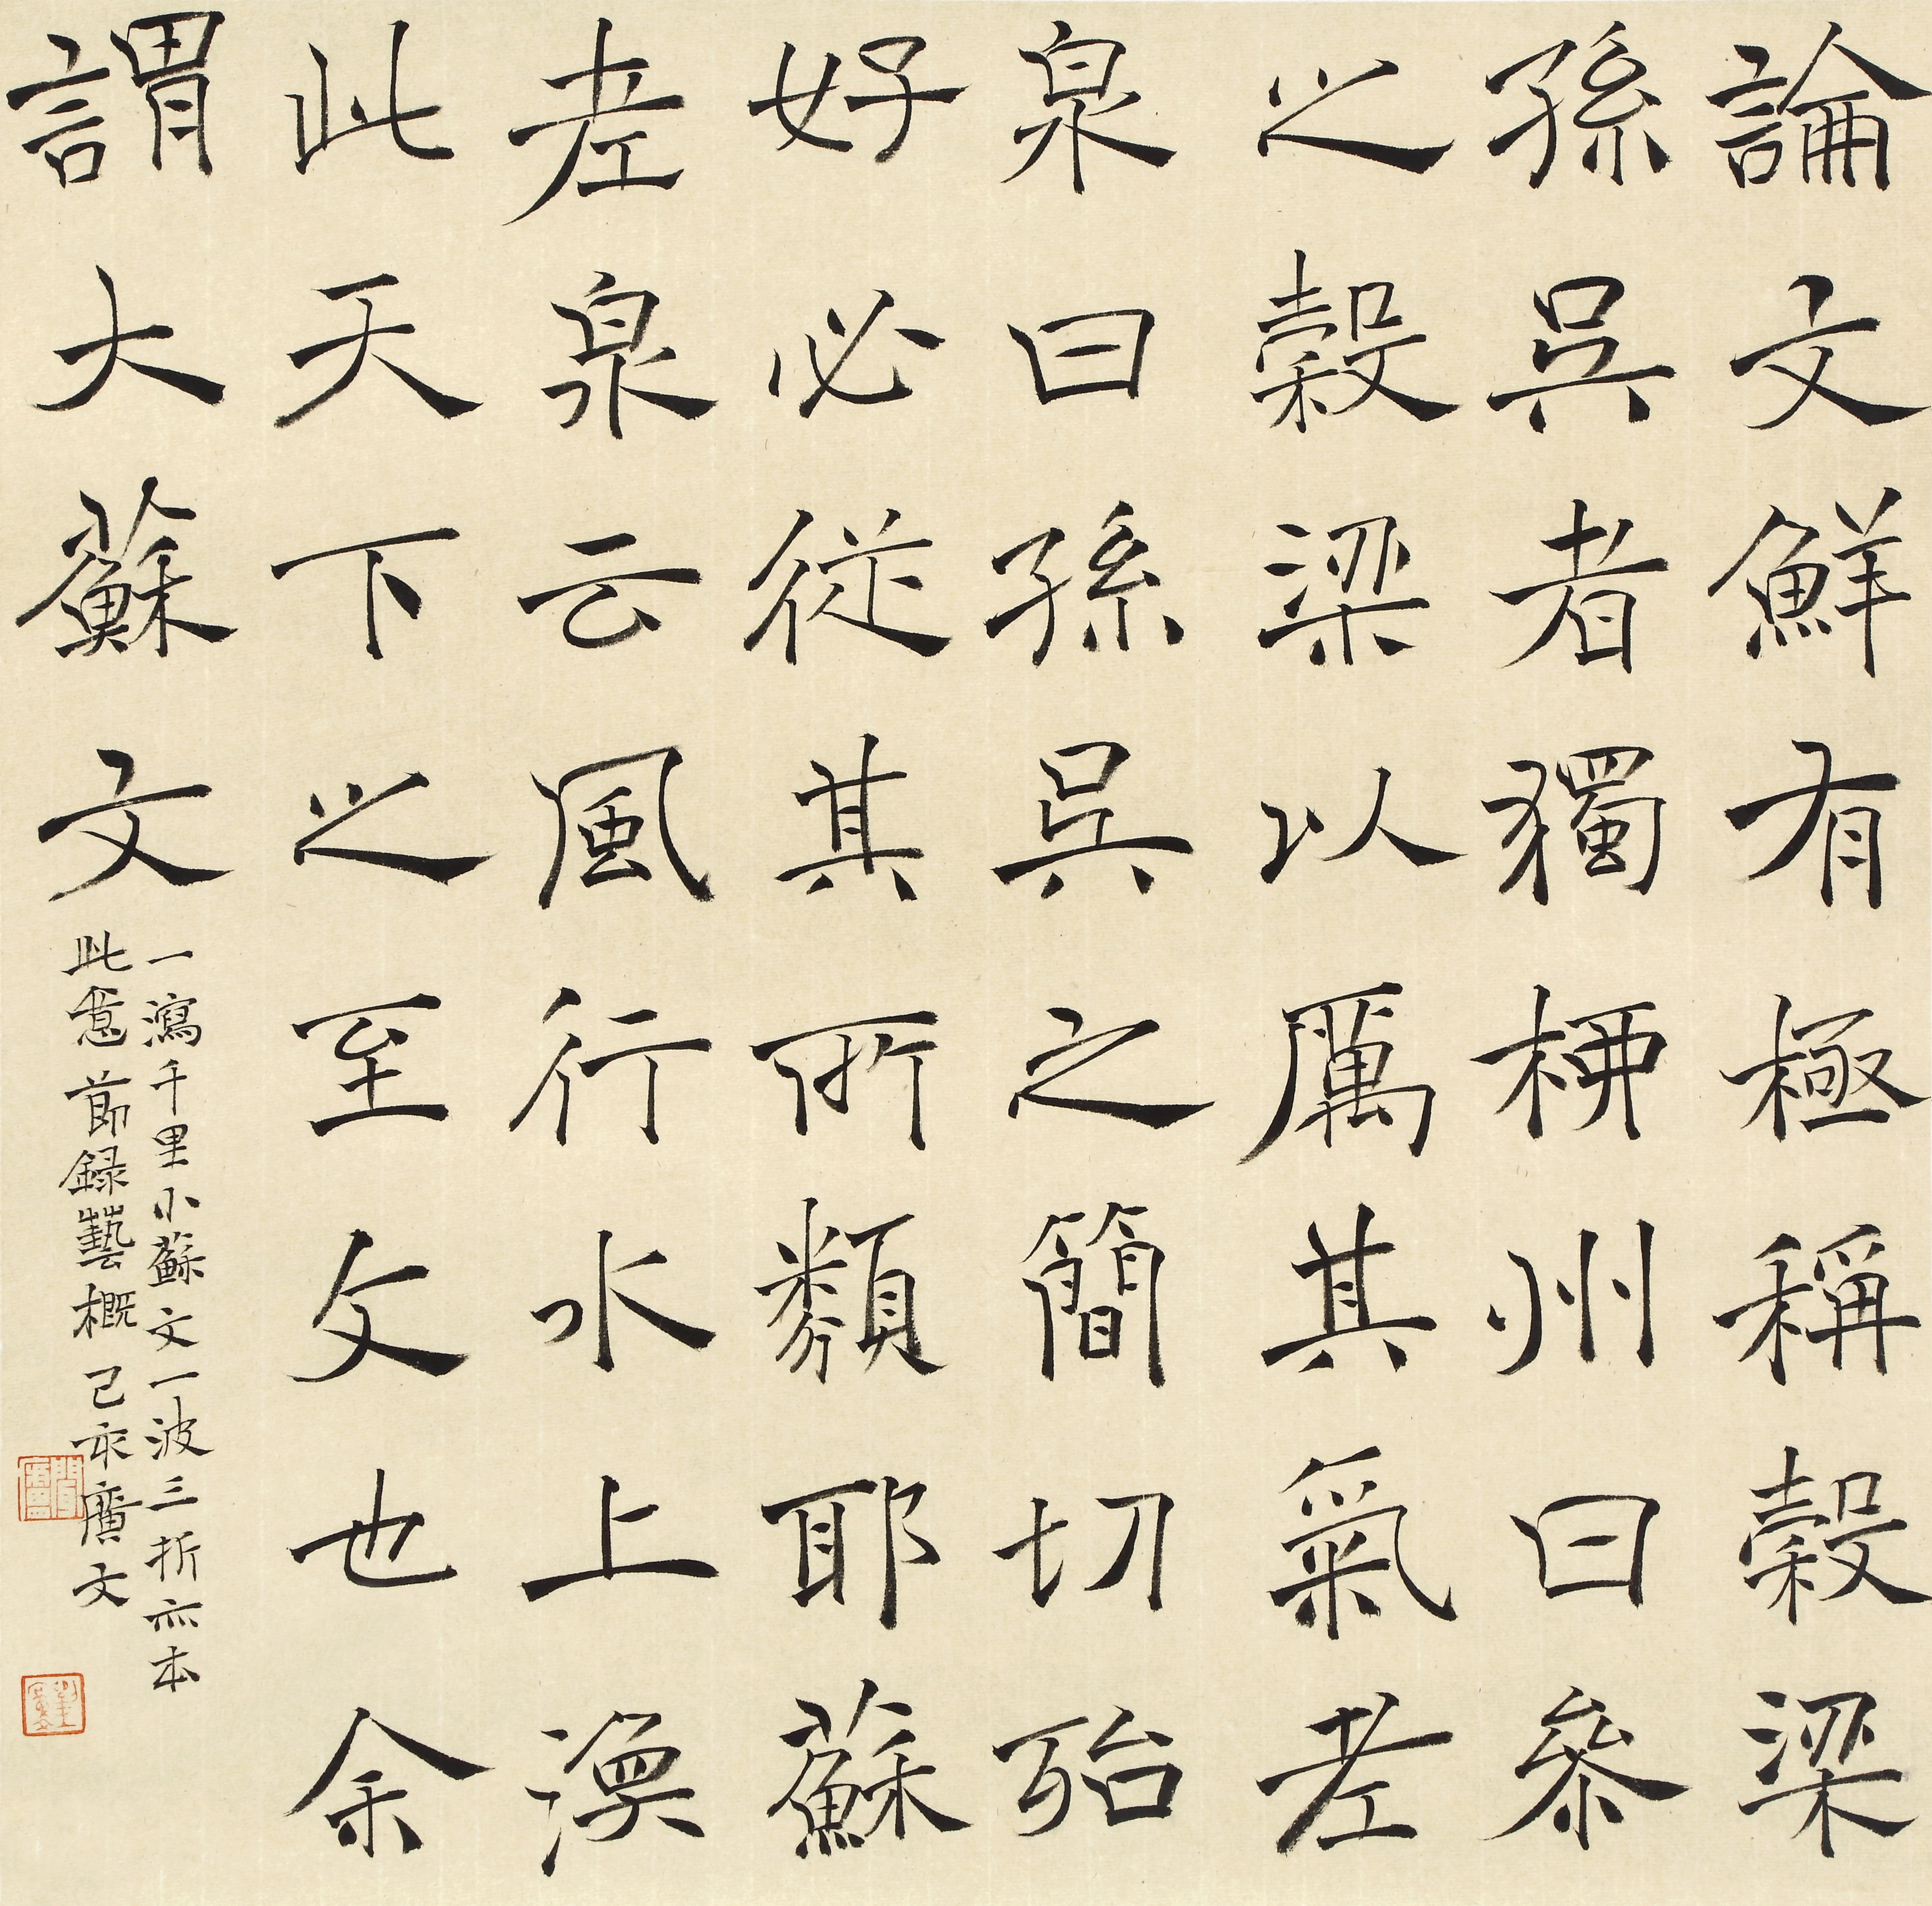 論文鮮有極稱穀梁
孫吳者獨柳州曰參
之穀梁以厲其氣老
泉曰孫吳之簡切殆
好必從其所類耶蘇
老泉云風行水上渙
此天下之至文也余
謂大蘇文
一瀉千里小蘇文一波三折亦本
此意節録藝概己亥廣文